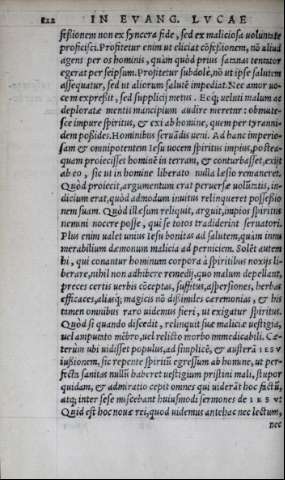 822 IN EVANG. LVCAE
feßionem non ex syncera fide, sed ex maliciosa uoluntate
proficisci. Profitetur enim ut eliciat cōfeßionem, nō aliud
agens per os hominis, quàm quòd prius tacitus tentator
egerat per seipsum. Profitetur subdolè, nō ut ipse salutem
assequatur, sed ut aliorum salutē impediat. Nec amor uo-
cem expreßit, sed supplicij metus. Ecq́; ueluti malum ac
deploratæ mentis mancipium audire meretur: obmute-
sce impure spiritus, & exi ab homine, quem per tyranni-
dem poßides. Hominibus seruādis ueni. Ad hanc imperio-
sam & omnipotentem Iesu uocem spiritus impius, postea-
quam proiecisset hominē in terram, & conturbasset, exijt
ab eo, sic ut in homine liberato nulla læsio remaneret.
Quòd proiecit, argumentum erat peruersæ uolūtatis, in-
dicium erat, quòd admodum inuitus relinqueret posseßio
nem suam. Quòd illæsum reliquit, arguit, impios spiritus
nemini nocere posse, qui se totos tradiderint seruatori.
Plus enim ualet unius Iesu bonitas ad salutem, quàm innu
merabilium dæmonum malicia ad perniciem. Solēt autem
hi, qui conantur hominum corpora à spiritibus noxijs li-
berare, nihil non adhibere remedij, quo malum depellant,
preces certis uerbis cōceptas, suffitus, aspersiones, herbas
efficaces, aliasq́; magicis nō dißimiles cæremonias, & his
tamen omnibus raro uidemus fieri, ut exigatur spiritus.
Quòd si quando discedit, relinquit suæ maliciæ uestigia,
uel amputato mēbro, uel relicto morbo immedicabili. Cæ-
terùm ubi uidisset populus, ad simplicē, & austerā IESV
iußionem, sic repente spiritū egressum ab homine, ut per-
fecta sanitas nullū haberet uestigium pristini mali, stupor
quidam, & admiratio cepit omnes qui uiderāt hoc factū,
atq́; inter sese miscebant huiusmodi sermones de IESV:
Quid est hoc nouæ rei, quod uidemus antehac nec lectum,
nec